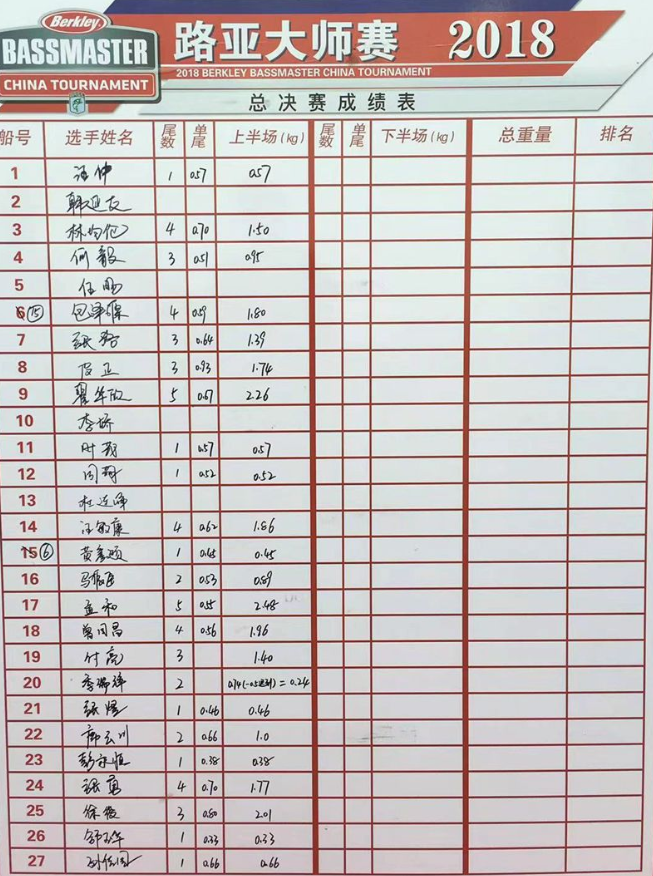 Berkley
BASSMASTER
CHINA TOURNAMENT
路亚大师赛 2018
2018 BERKLEY BASSMASTER CHINA TOURNAMENT
总决赛成绩表
船号 选手姓名 尾数 单尾 上半场(kg) 尾数 单尾 下半场(kg) 总重量 排名
1 1 0.57 0.57
2
3 4 0.70 1.50
4 何毅 3 0.51 0.95
5
6 15 4 0.59 1.80
7 3 0.64 1.39
8 3 0.93 1.74
9 5 0.67 2.26
10 李娇
11 叶翔 1 0.57 0.57
12 1 0.52 0.52
13
14 汪敏康 4 0.62 1.86
15 6 1 0.45 0.45
16 2 0.53 0.89
17 孟和 5 0.55 2.48
18 4 0.56 1.96
19 付亮 3 1.40
20 李瑞泽 2 0.74(-0.5 ) = 0.24
21 张煜 1 0.46 0.46
22 2 0.66 1.0
23 彭永恒 1 0.38 0.38
24 张勇 4 0.70 1.77
25 徐俊 3 0.80 2.01
26 1 0.33 0.33
27 1 0.66 0.66